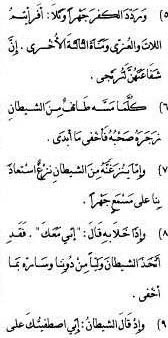 ٥) وَردَّدَ الكفْرَ جَهْراً وتَلا: أفَرأيتُم
اللاتَ والعُزى ومَناةَ الثالثةَ الأخْرى. إنَّ
شَفَاعَتَهُنَّ لتُرْتجى.
٦) كلَّما مَسَّه طَائفٌ مِنَ الشيطانِ
زَجَرَهُ صَحْبُهُ فَأخْفى ما أبْدى.
٧) وإمّا يَنزَغَنَّهُ مِنَ الشيطانِ نزْغٌ استعاذَ
بنا على مَسْمَعٍ جَهْراً.
٨) وإذا خَلا بهِ قالَ: "إنّي مَعَكَ". فَقَدِ
اتَّخَذَ الشيطانَ وَلِيّاً مِنْ دُونِنا وسَارَّهُ بِمَا
أخْفى.
٩) وإذْ قالَ الشيطانُ: إنّي اصطفيتُكَ على